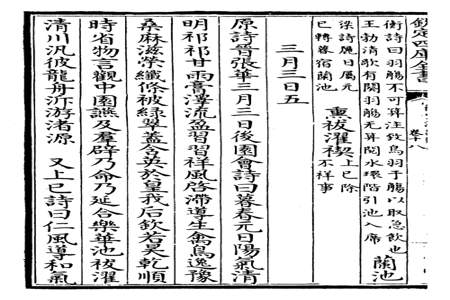 欽定四庫全書
卷八
衡詩曰羽觴不可筭注致鳥羽于觴以取急飲也
王勃清歌有闋羽觴无算閱水環階引池入席
蘭池
梁詩麗日屬元
巳轉蕙宿蘭池
熏祓濯禊
上巳除
不祥事
三月三日五
原詩晉張華三月三日後園會詩曰暮春元日陽氣清
明祁祁甘雨膏澤流盈習習祥風啓滯導生禽鳥逸豫
桑麻滋榮纖條被綠翠蓋含英於皇我后欽若昊乾順
時省物言觀中園讌及羣辟乃命乃延合樂華池祓濯
清川汎彼龍舟泝游渚源 又上巳詩曰仁風導和氣